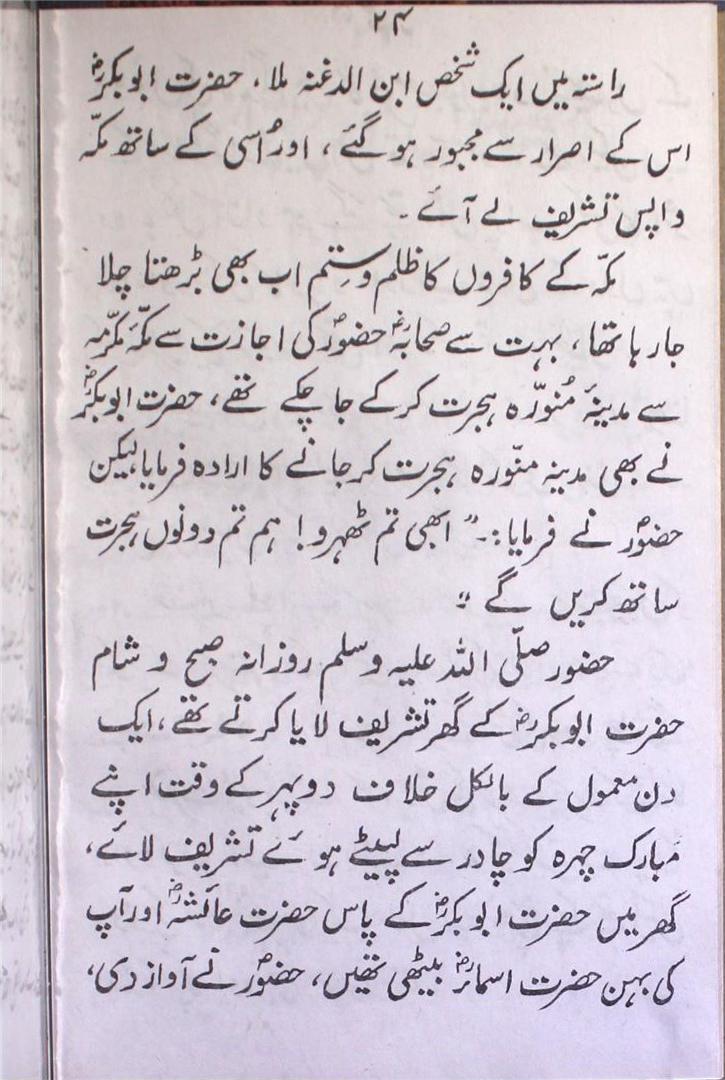 ۲۴
راستہ میں ایک شخص ابن الدغنہ ملا، حضرت ابوبکرؓ
اس کے اصرار سے مجبور ہوگئے، اور اُسی کے ساتھ مکّہ
واپس تشریف لے آئے۔
مکّہ کے کافروں کا ظلم و سِتم اب بھی بڑھتا چلا
جارہا تھا، بہت سے صحابہؓ حضورؐ کی اجازت سے مکّۂ مکرّمہ
سے مدینۂ مُنوّرہ ہجرت کرکے جاچکے تھے، حضرت ابوبکرؓ
نے بھی مدینہ منّورہ ہجرت کر جانے کا ارادہ فرمایا، لیکن
حضورؐ نے فرمایا:۔ ”ابھی تم ٹھہرو! ہم تم دونوں ہجرت
ساتھ کریں گے“
حضور صلّی اللہ علیہ وسلم روزانہ صبح و شام
حضرت ابوبکرؓ کے گھر تشریف لایا کرتے تھے، ایک
دن معمول کے بالکل خلاف دوپہر کے وقت اپنے
مبارک چہرہ کو چادر سے لپیٹے ہوئے تشریف لائے،
گھر میں حضرت ابوبکرؓ کے پاس حضرت عائشہؓ اور آپ
کی بہن حضرت اسماءؓ بیٹھی تھیں، حضورؐ نے آواز دی،